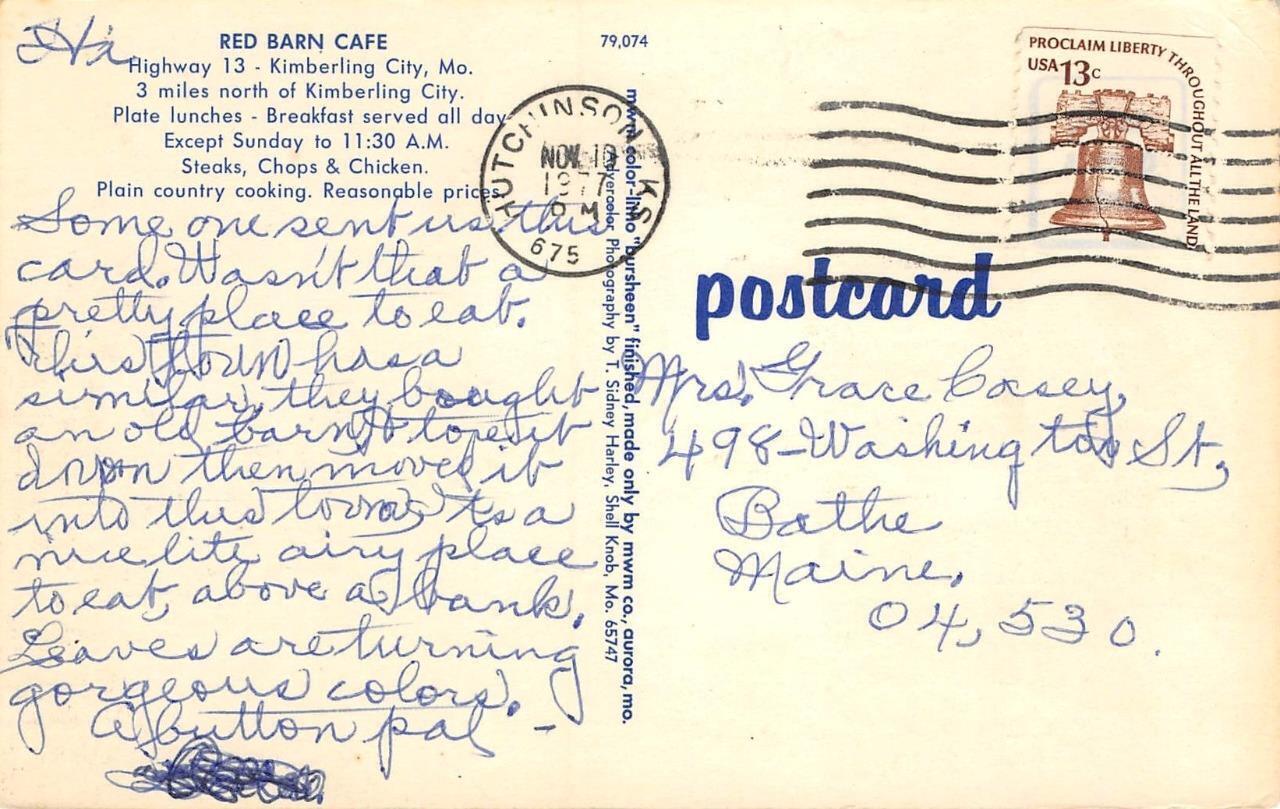 Hi
RED BARN CAFE
Highway 13 - Kimberling City, Mo.
3 miles north of Kimberling City.
Plate lunches - Breakfast served all day
Except Sunday to 11:30 A.M.
Steaks, Chops & Chicken.
Plain country cooking. Reasonable prices.
Some one sent us this
card. Wasn't that a
pretty place to eat.
This town has a
similar, they bought
an old barn, to
down then moved it
into this town, Its a
nice lite airy place
to eat, above a bank.
Leaves are turning
gorgeous colors.
A button pal -
79,074
mwm color-litho "pursheen" finished, made only by mwm co., aurora, mo.
Photography by T. Sidney Harley, Shell Knob, Mo. 65747
HUTCHINSON, KS
NOV 10
1977
PM
675
PROCLAIM LIBERTY THROUGHOUT ALL THE LAND
USA 13c
postcard
Mrs. Grace Casey,
498-Washington St,
Bathe
Maine.
04,530.